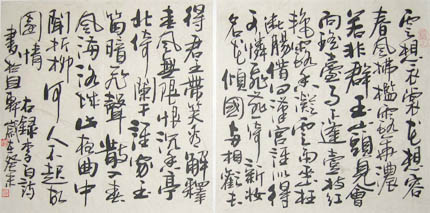 雲想衣裳花想容
春風拂檻露華濃
若非群玉山頭見會
向瑤臺月下逢一枝紅
艷露凝香雲雨巫山枉
斷腸借問漢宮誰得似
可憐飛燕倚新妝
名花傾國兩相歡長
得君王帶笑看解釋
春風無限恨沉香亭
北倚闌干誰家玉
笛暗飛聲散入春
風滿洛城此夜曲中
聞折柳何人不起故
園情 右錄李白詩
書於
癸未